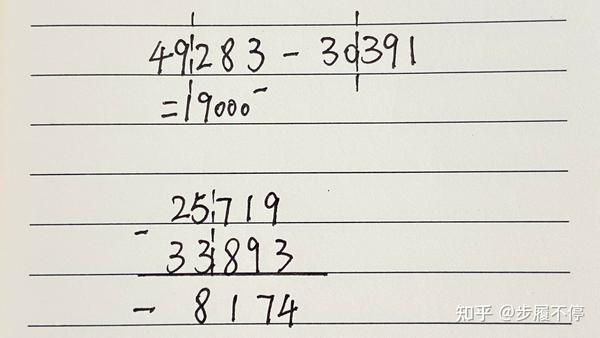 49¦283 - 30¦391
=19000⁻
25¦719
-
33¦893
- 8174
知乎 @步履不停